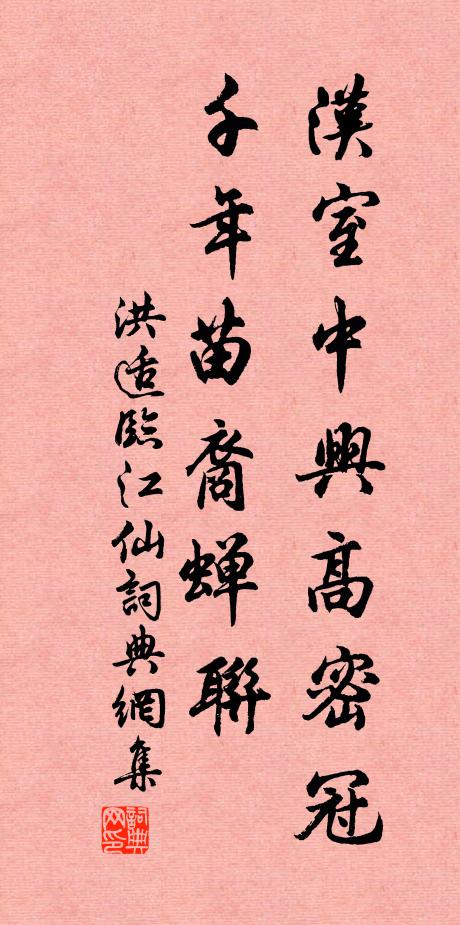 漢室中興高密冠
千年苗裔蟬聯
洪适臨江仙詞典網集
詞典网印